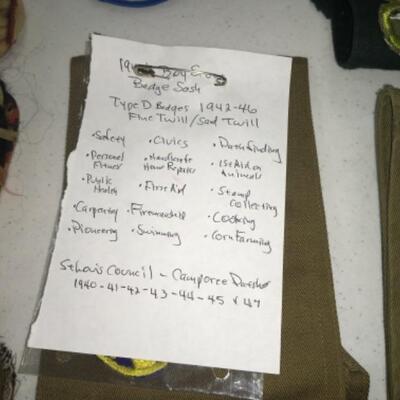 Boy Scout
Badge Sash
Type D Badges 1942-46
Fine Twill / Sand Twill
• Safety • Civics • Pathfinding
• Personal Fitness • Handicraft Home Repairs • 1st Aid on Animals
• Public Health • First Aid • Stamp Collecting
• Carpentry • Firemanship • Cooking
• Pioneering • Swimming • Corn Farming
St Louis Council - Camporee
1940-41-42-43-44-45 & 47